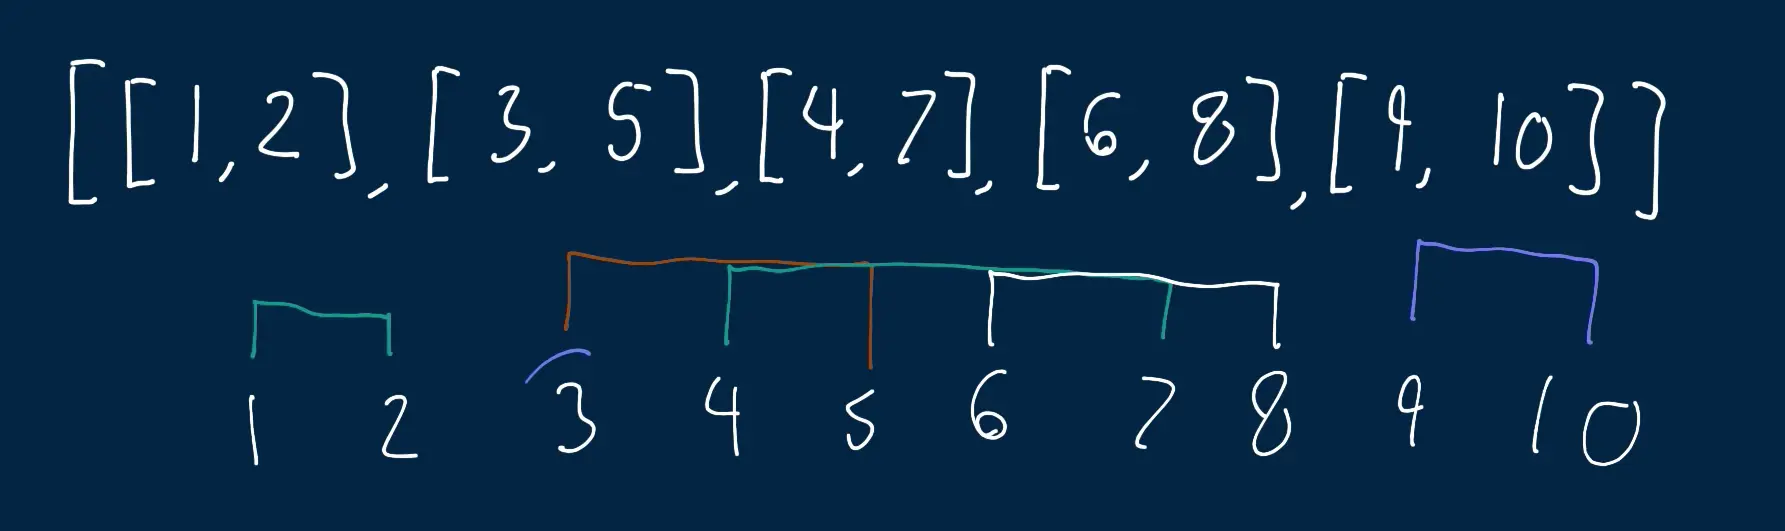 [[1,2], [3, 5], [4, 7], [6, 8], [9, 10]]
1 2 3 4 5 6 7 8 9 10